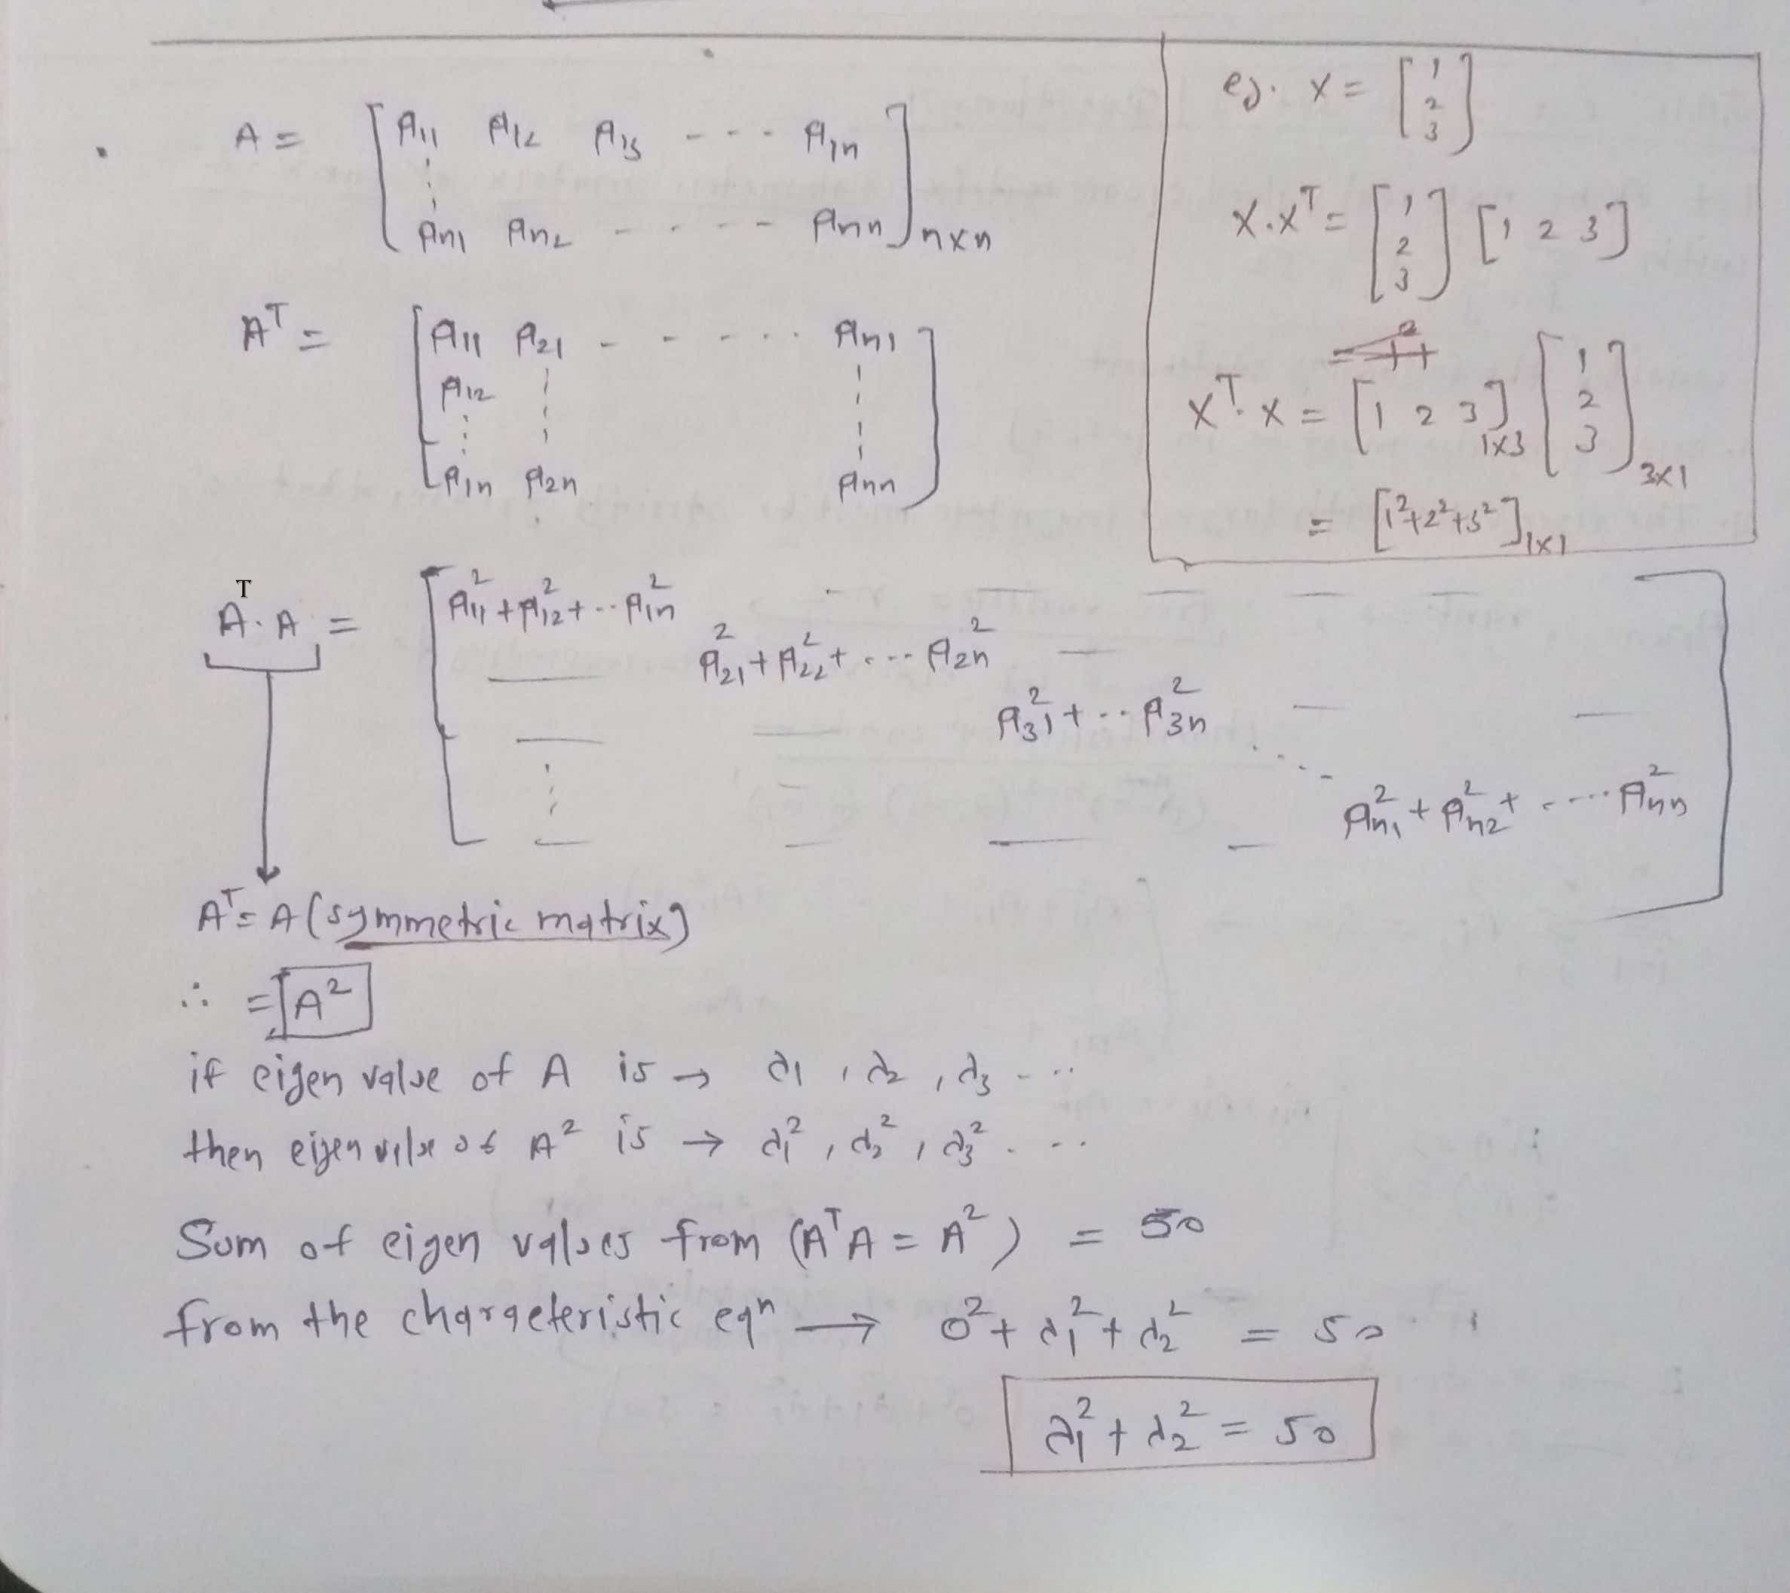 A = [ A11 A12 A13 - - - A1n
⋮
An1 An2 - - - - - Ann ] nxn
A^T = [ A11 A21 - - - - - - An1
A12 ⋮ ⋮
⋮ ⋮ ⋮
A1n A2n Ann ]
eg. X = [ 1 2 3 ]
X.X^T = [ 1 2 3 ] [1 2 3]
X^T.X = [1 2 3] 1x3 [ 1 2 3 ] 3x1
= [1²+2²+3²] 1x1
A^T.A = [ A11²+A12²+..A1n²
A21²+A22²+...A2n²
A31²+..A3n²
An1²+An2²+.....Ann² ]
A^T = A (symmetric matrix)
∴ = A²
if eigen value of A is → λ1, λ2, λ3 ...
then eigen value of A² is → λ1², λ2², λ3² ...
Sum of eigen values from (A^T A = A²) = 50
from the characteristic eqn → 0² + λ1² + λ2² = 50
λ1² + λ2² = 50